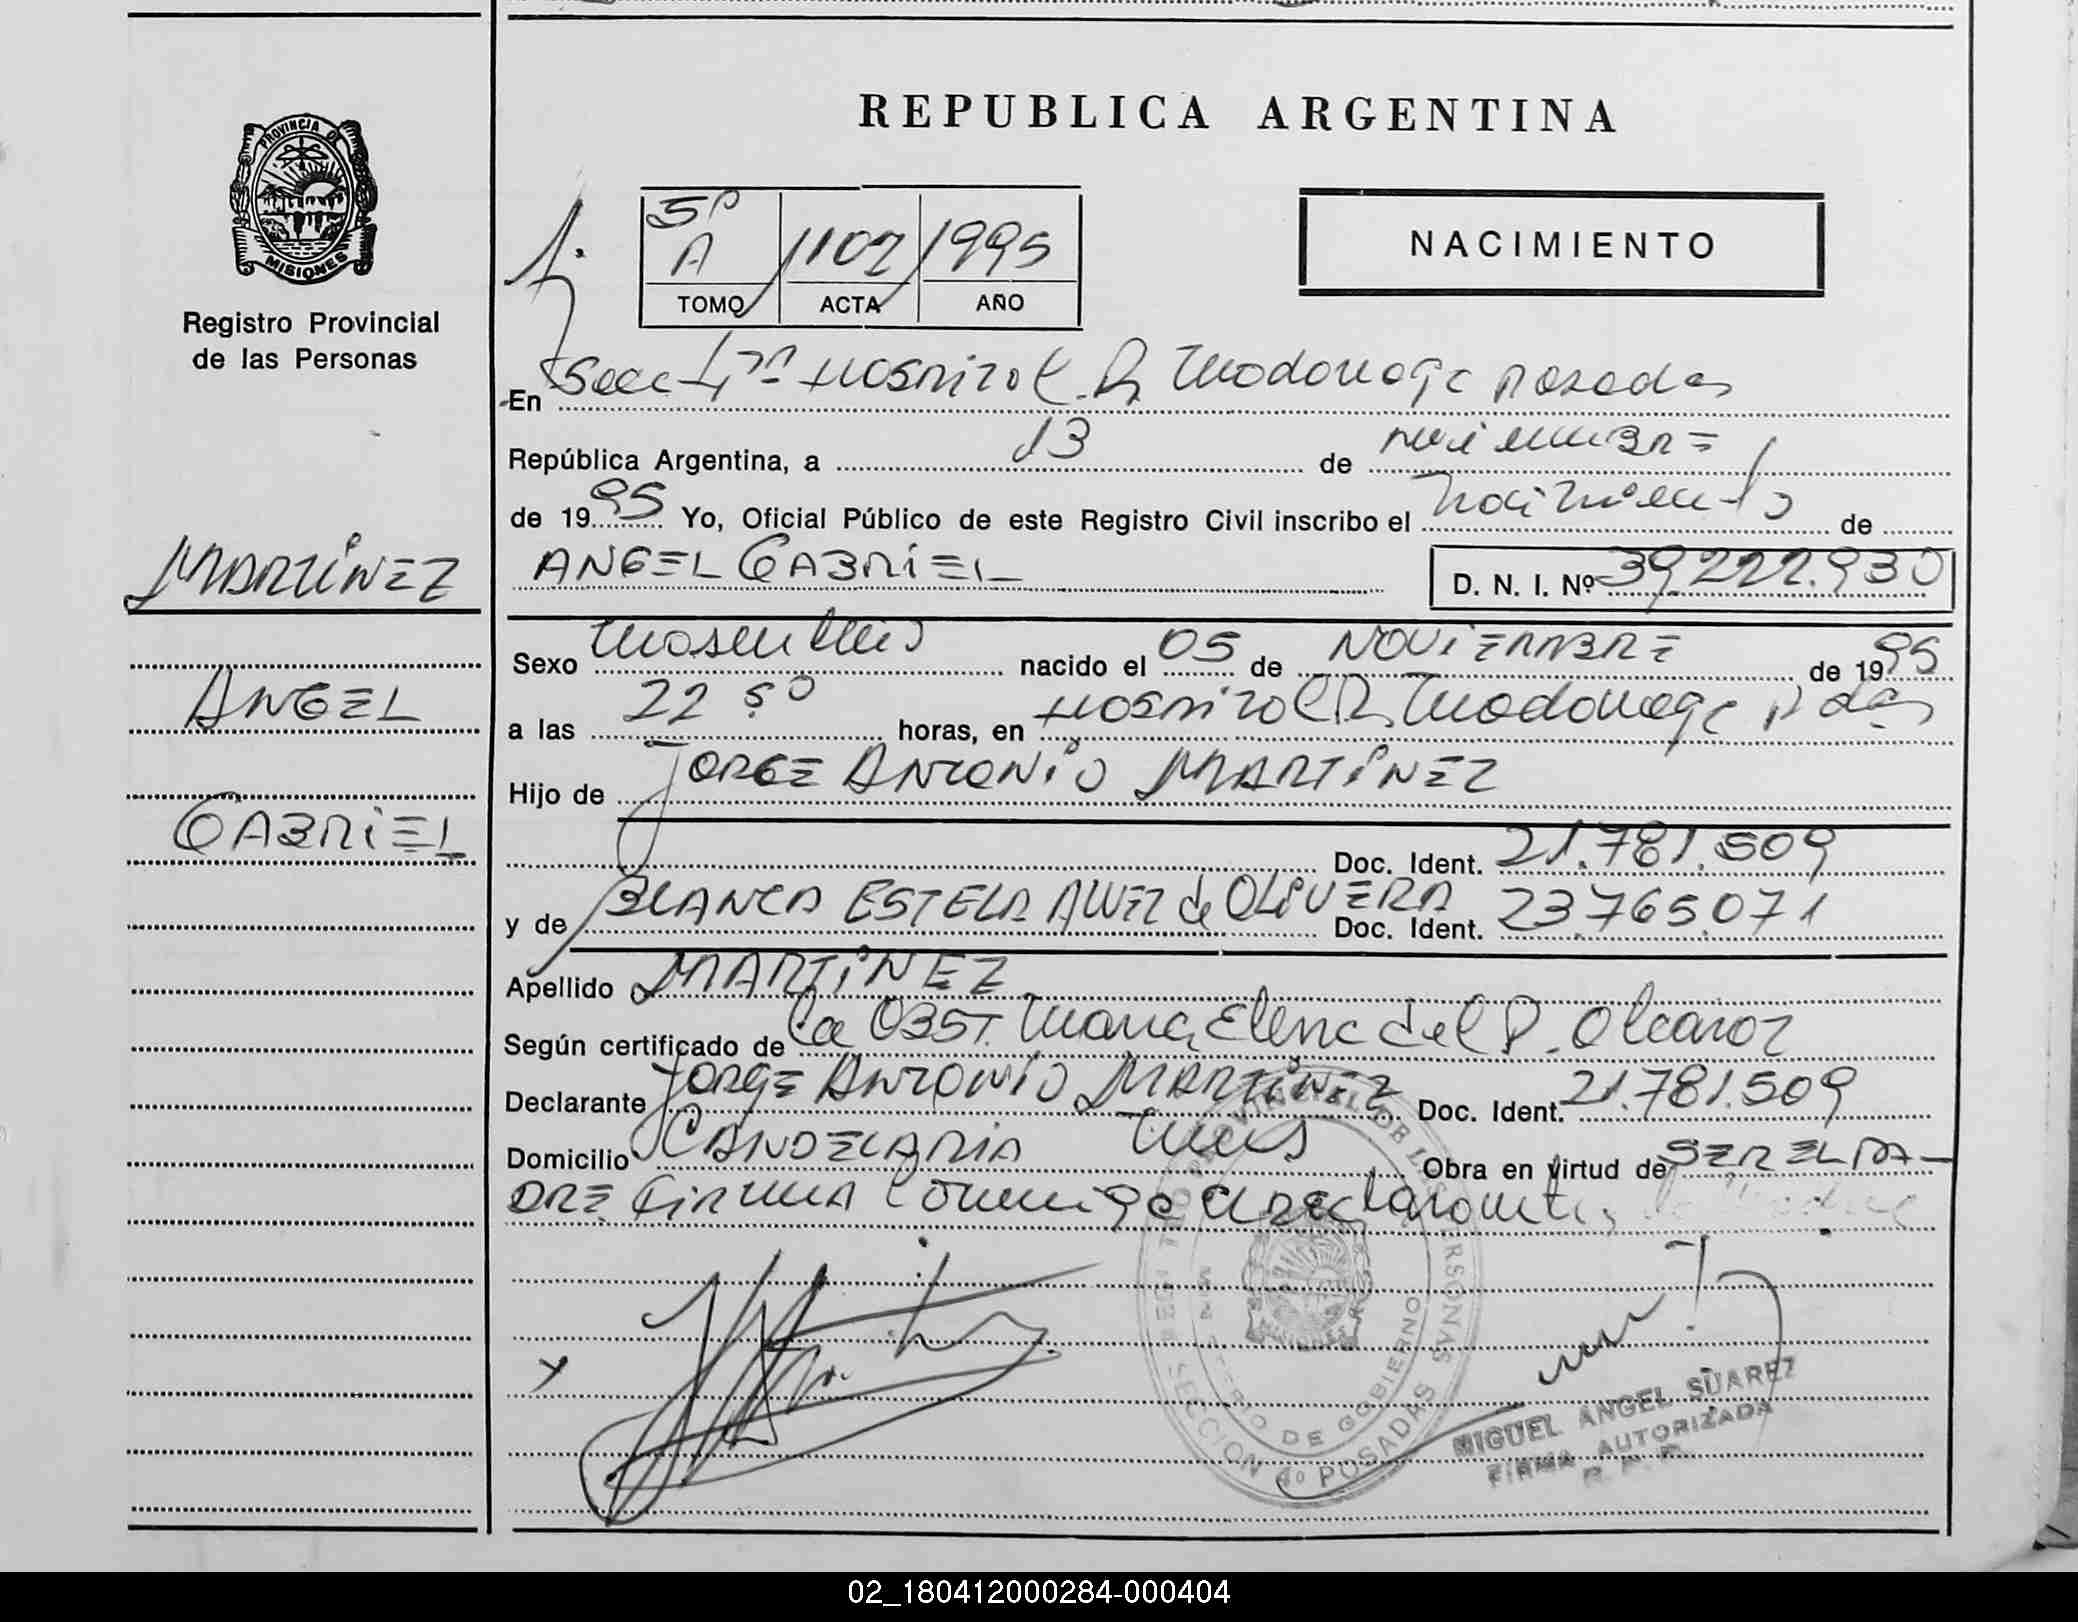 PROVINCIA DE
MISIONES
Registro Provincial
de las Personas
MARTÍNEZ
ANGEL
GABRIEL
REPUBLICA ARGENTINA
NACIMIENTO
5º
A 1107 1995
TOMO ACTA AÑO
En Secc 4ta Hospital R. Madariaga Posadas
República Argentina, a 13 de noviembre
de 1995 Yo, Oficial Público de este Registro Civil inscribo el nacimiento de
ANGEL GABRIEL D. N. I. Nº 39.222.930
Sexo masculino nacido el 05 de NOVIEMBRE de 1995
a las 22 50 horas, en Hospital R. Madariaga Pdas
Hijo de JORGE ANTONIO MARTÍNEZ
Doc. Ident. 21.781.509
y de BLANCA ESTELA ALVEZ de OLIVERA Doc. Ident. 23.765.071
Apellido MARTÍNEZ
Según certificado de la OBST. Maria Elena del P. Alcaraz
Declarante JORGE ANTONIO MARTÍNEZ Doc. Ident. 21.781.509
Domicilio CANDELARIA Mnes Obra en virtud de SER EL PA-
DRE FIRMA conmigo el declarante,
SECCION 4º POSADAS
MINISTERIO DE GOBIERNO
MIGUEL ANGEL SUAREZ
FIRMA AUTORIZADA
R. P. P.
02_180412000284-000404